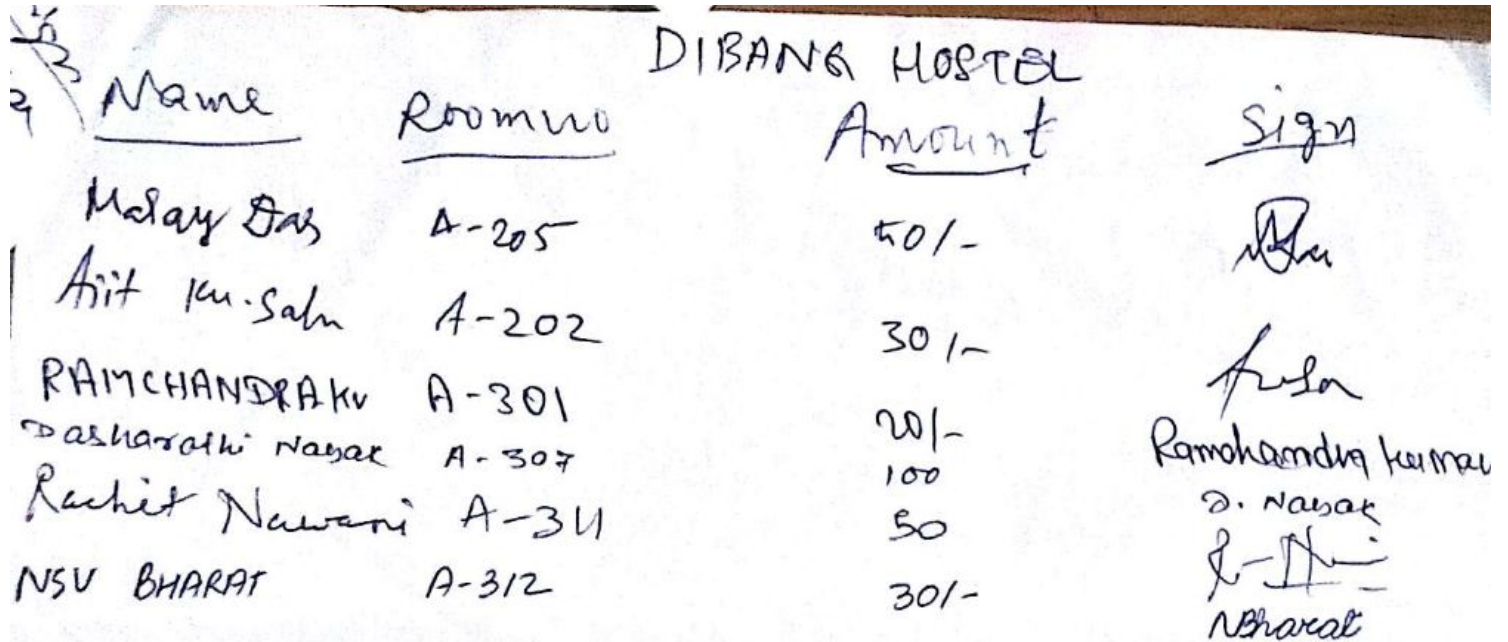 DIBANG HOSTEL
Name Roomno Amount Sign
Malay Das A-205 50/-
Ajit Ku. Sahu A-202 30/-
RAMCHANDRA KU A-301 20/- Ramchandra Kumar
Dasharathi Nayak A-307 100 D. Nayak
Rachit Nawani A-311 50
NSV BHARAT A-312 30/- NBharat